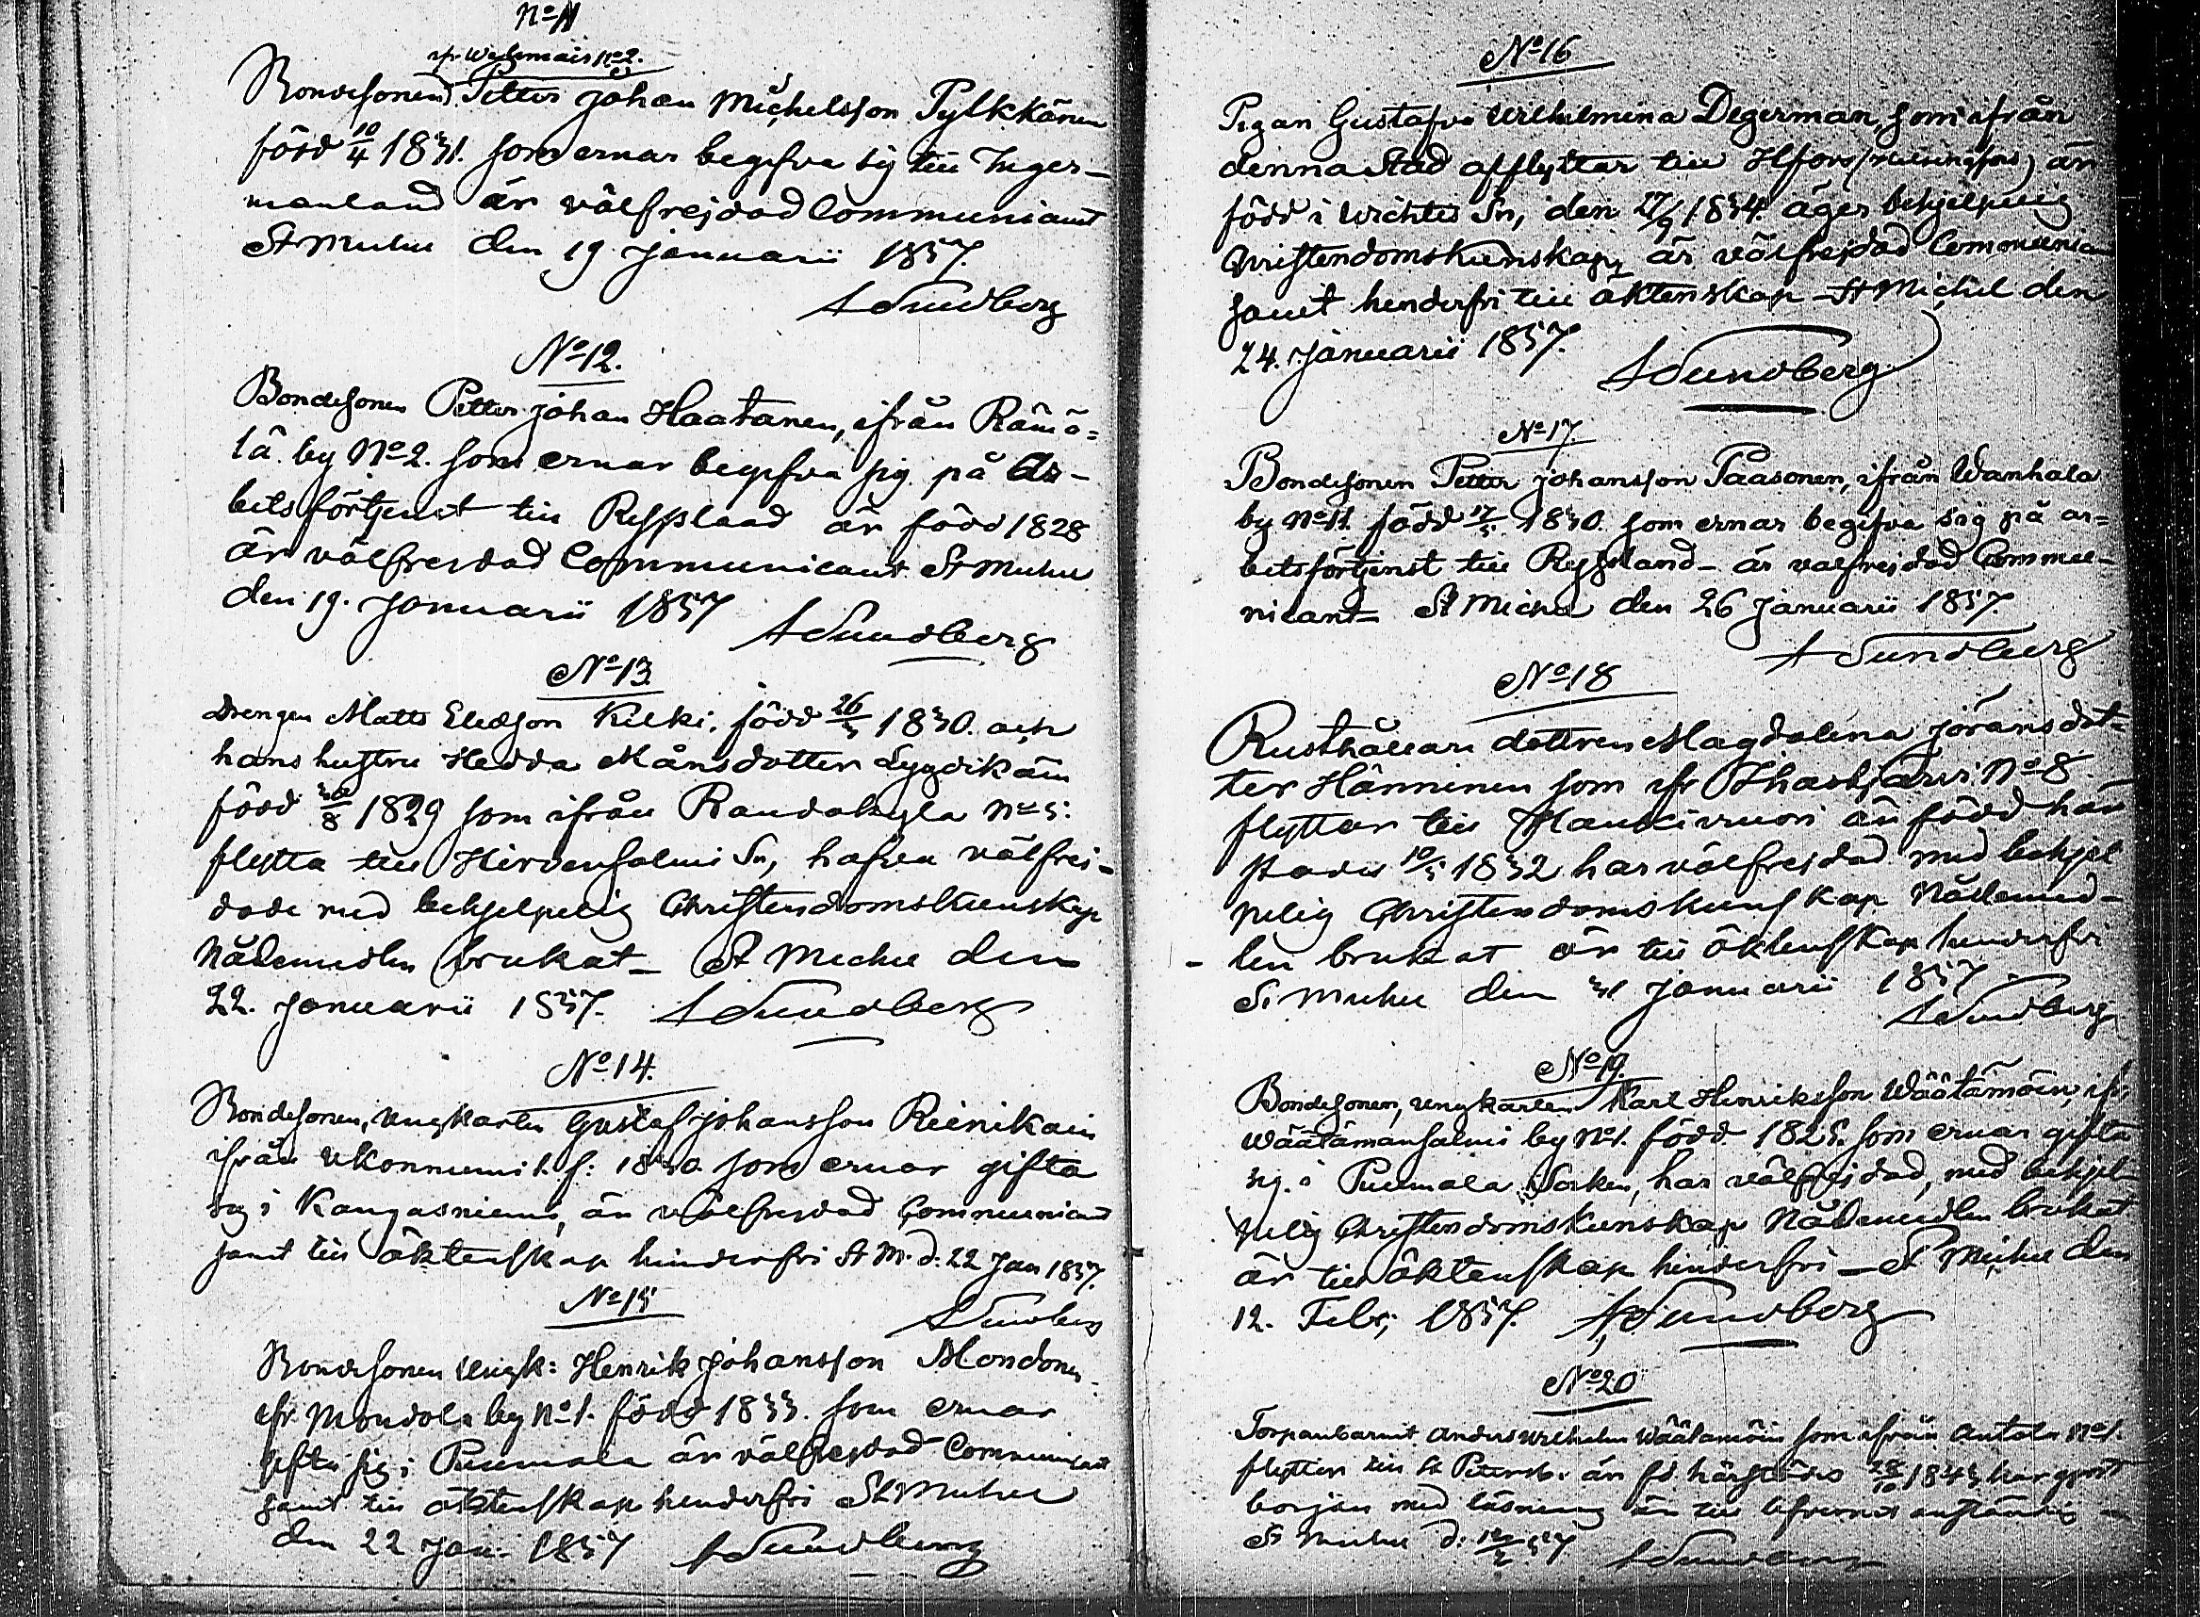 No 11
ifr Wehmais No 2.
Bondesonen Petter Johan Michelsson Pylkkänen
född 10/4 1831. som ernar begifva sig till Inger-
manland är välfrejdad Communicant
St Michel den 19 Januarii 1857.
A Sundberg
No 12.
Bondesonen Petter Johan Haatanen, ifrån Rämä-
lä by No 2. som ernar begifva sig på Ar-
betsförtjenst till Ryssland är född 1828
är välfrejdad Communicant St Michel
den 19. Januarii 1857
A Sundberg
No 13.
Drengen Matts Kilki, född 26/5 1830. och
hans hustru Hedda Månsdotter
född 1829 som ifrån Randakyla No 5:
flytta till Hirvensalmi Sn, hafva välfrej-
dade med behjelpelig Christendomskunskap
Nådemedlen brukat – St Michel den
22. Januarii 1857. A Sundberg
No 14.
Bondesonen, ungkarlen Gustaf Johansson
ifrån Ukonniemi 1. f: 1830 som ernar gifta
sig i Kangasniemi, är välfrejdad Communicant
samt till äktenskap hinderfri St M. d. 22 Jan 1857.
No 15
A Sundberg
Bondesonen ungk: Henrik Johansson Mondonen
ifr Mondola by No 1. född 1833. som ernar
gifta sig i Puumala är välfrejdad Communicant
samt till äktenskap hinderfri St Michel
den 22 Jan: 1857 A Sundberg
No 16
Pigan Gustafva Wilhelmina Degerman, som ifrån
denna Stad afflyttar till Hfors (Helsingfors) är
född i Wichtis Sn, den 27/9 1834. äger behjelpelig
Christendomskunskap, är välfrejdad Communican
samt hinderfri till äktenskap – St Michel den
24. Januarii 1857.
A Sundberg
No 17.
Bondesonen Petter Johansson Paasonen, ifrån Wanhala
by No 11. född 17/5 1830. som ernar begifva sig på ar-
betsförtjenst till Ryssland – är välfrejdad Commu-
nicant – St Michel den 26 Januarii 1857.
A Sundberg
No 18
Rusthållare dottren Magdalena Jöransdot-
ter Hänninen som ifr Ihastjärvi No 8.
flyttar till Haukivuori är född här
städes 10/5 1832 har välfrejdad med behjel
pelig Christendomskunskap Nådemed-
len brukat är till äktenskap hinderfri
St Michel den 31 Januarii 1857
A Sundberg
No 19.
Bondesonen, ungkarlen Karl Henriksson Wäätämöin, ifr
Wäätämänsalmi by No 1. född 1825. som ernar gifta
sig i Puumala Socken, har välfrejdad, med behjel-
pelig Christendomskunskap Nådemedlen brukat
är till äktenskap hinderfri – St Michel den
12. Febr; 1857. A Sundberg
No 20
Torparebarnet Anders Wilhelm Wäätämöin som ifrån Antola No 1.
flyttar till St Petersb. är fd. härstädes 28/10 1843, har gjort
början med läsning är till lefvernet anständig –
St Michel d: 12/2 57 A Sundberg